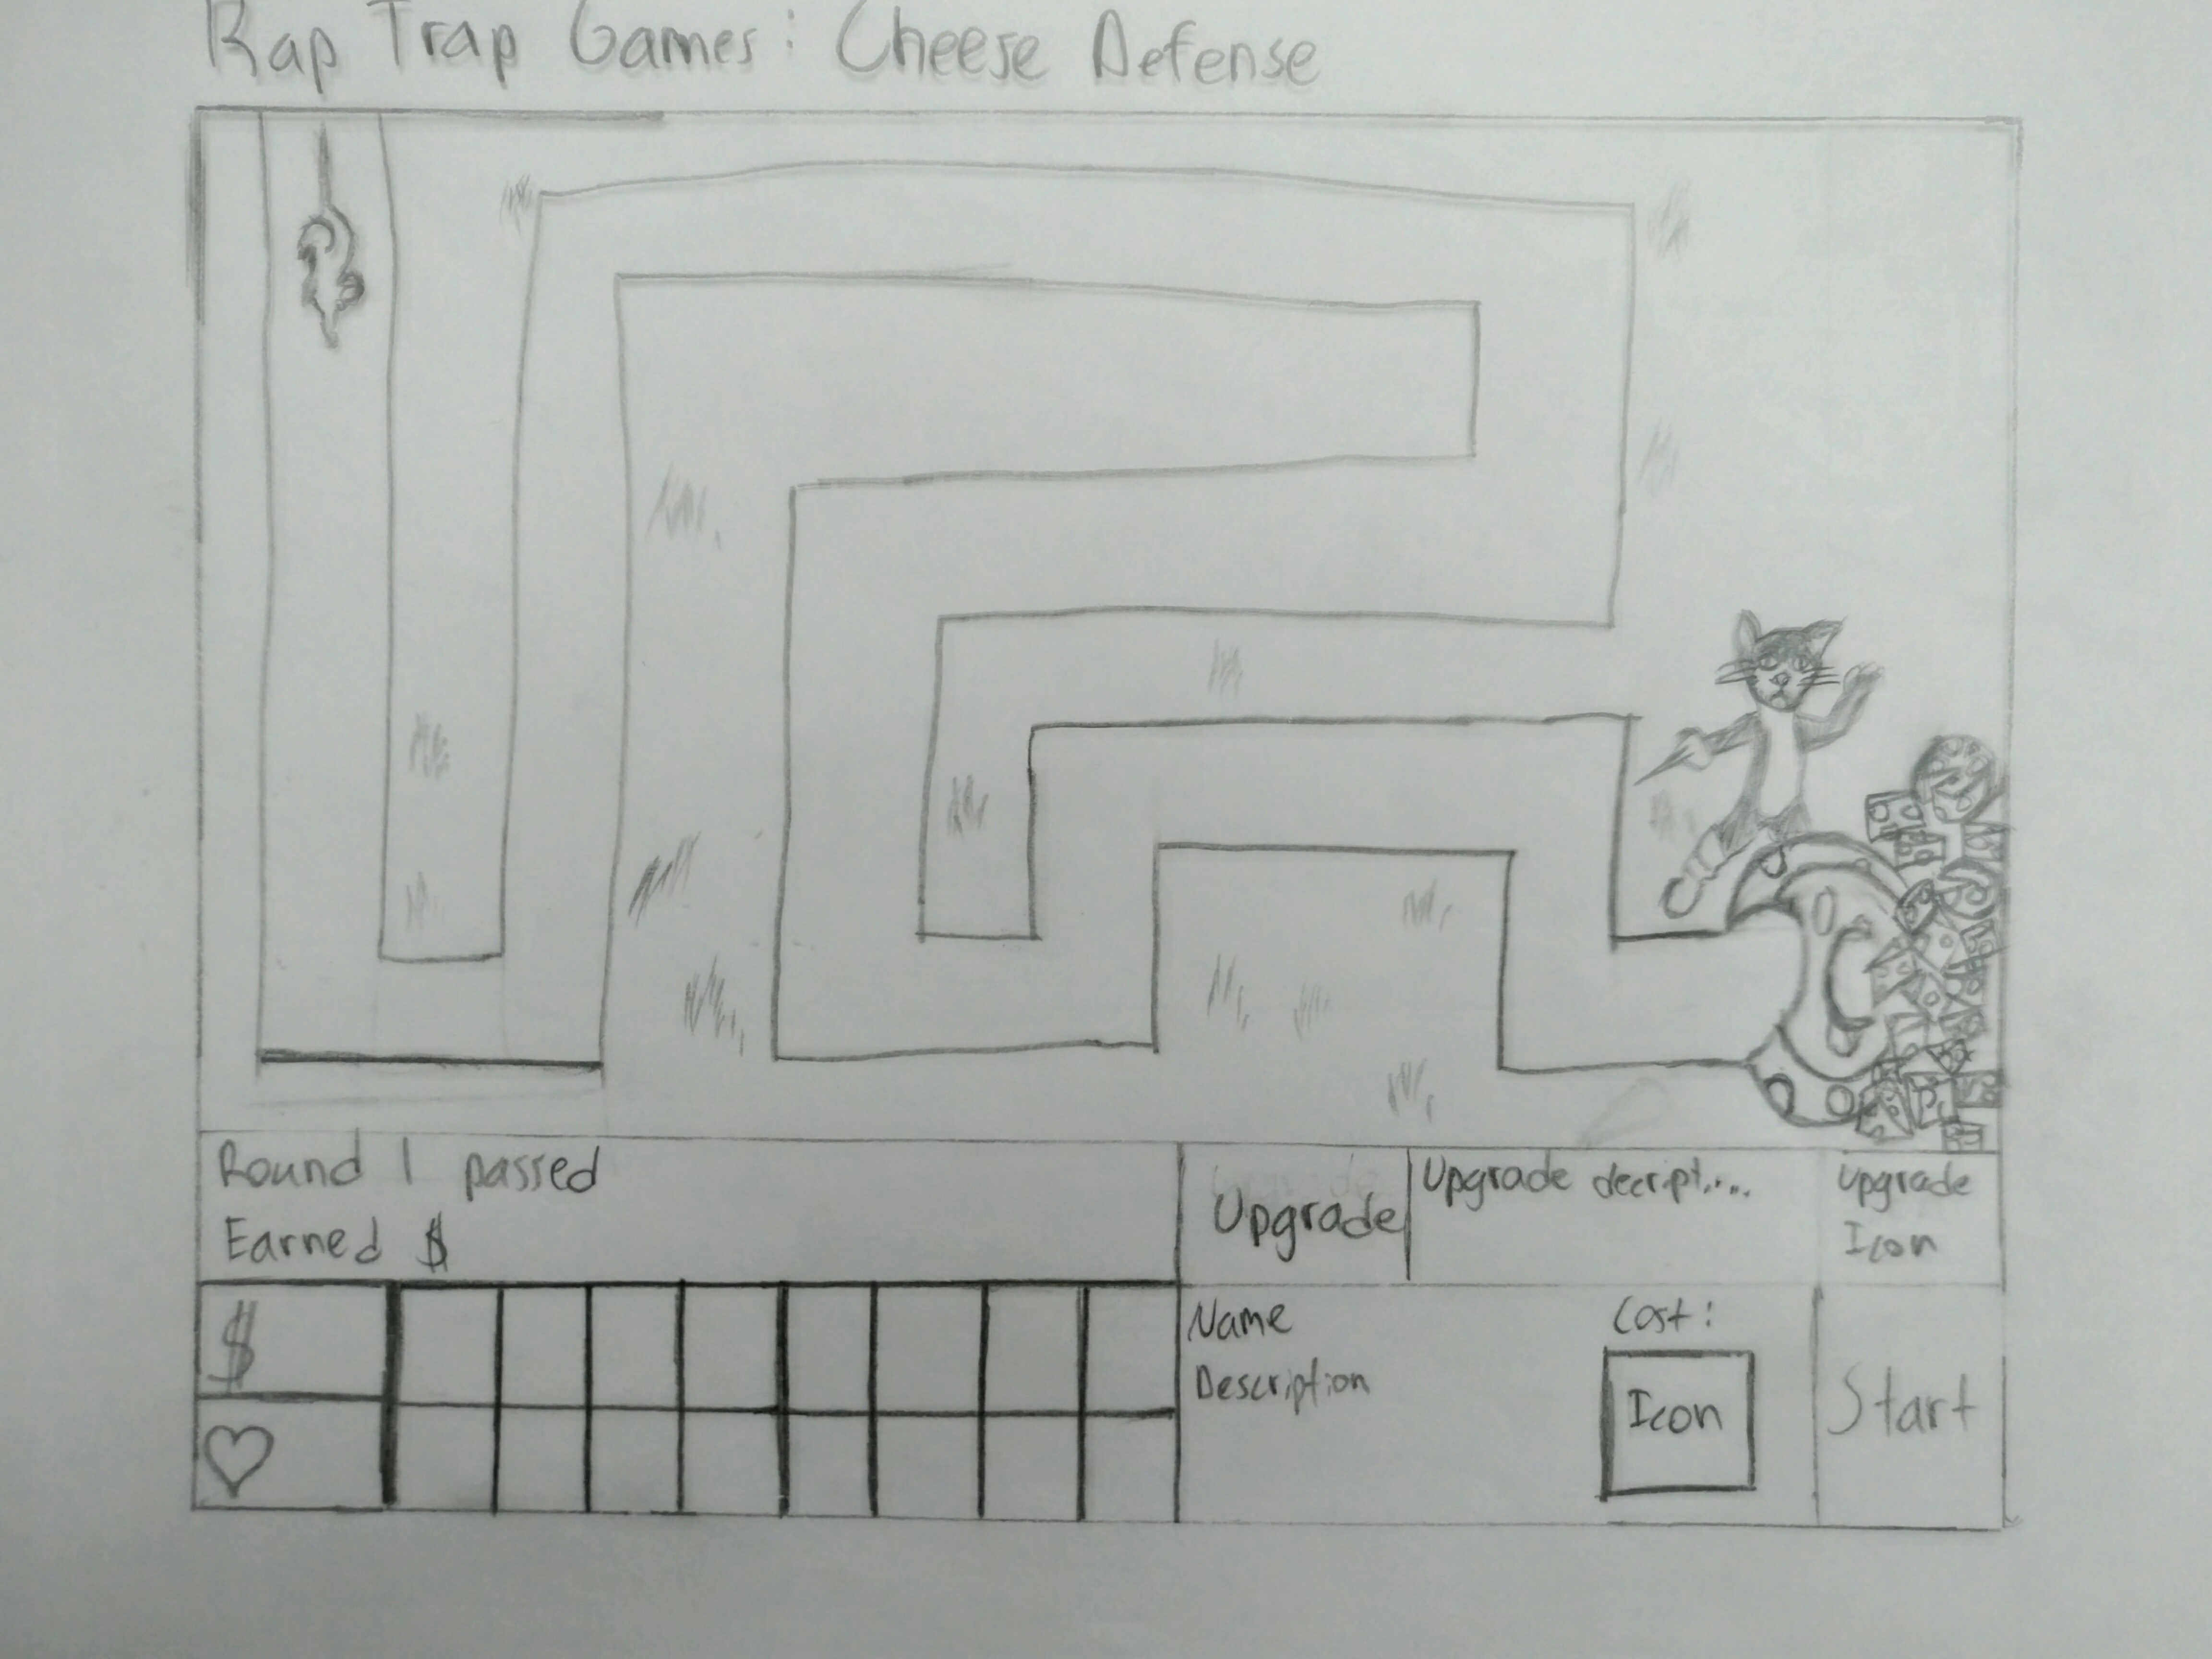 Rap Trap Games: Cheese Defense
Round 1 passed
Earned $
Upgrade
Upgrade decript....
Upgrade
Icon
$
Name
Description
Cost:
Icon
Start